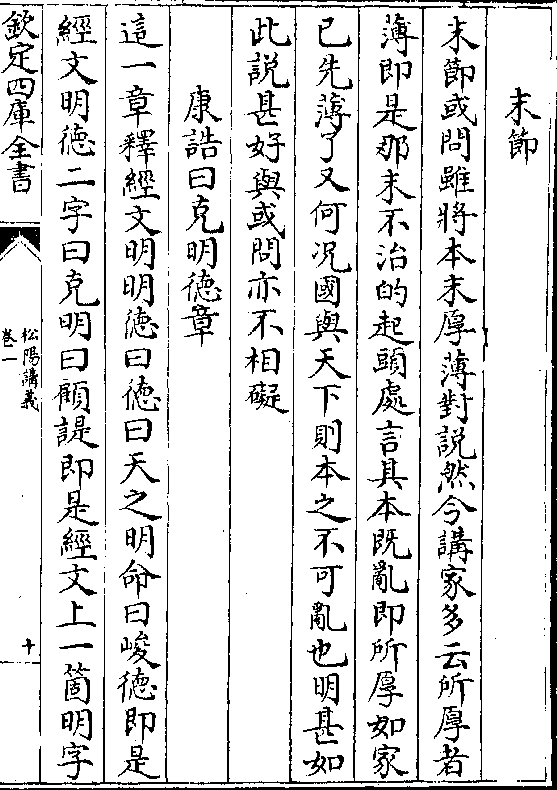 末節
末節或問雖將本末厚薄對説然今講家多云所厚者
薄即是那末不治的起頭處言其本既亂即所厚如家
已先薄了又何况國與天下則本之不可亂也明甚如
此説甚好與或問亦不相礙
康誥曰克明徳章
這一章釋經文明明徳曰徳曰天之明命曰峻徳即是
經文明徳二字曰克明曰顧諟即是經文上一箇明字
欽定四庫全書
松陽講義
卷一
十